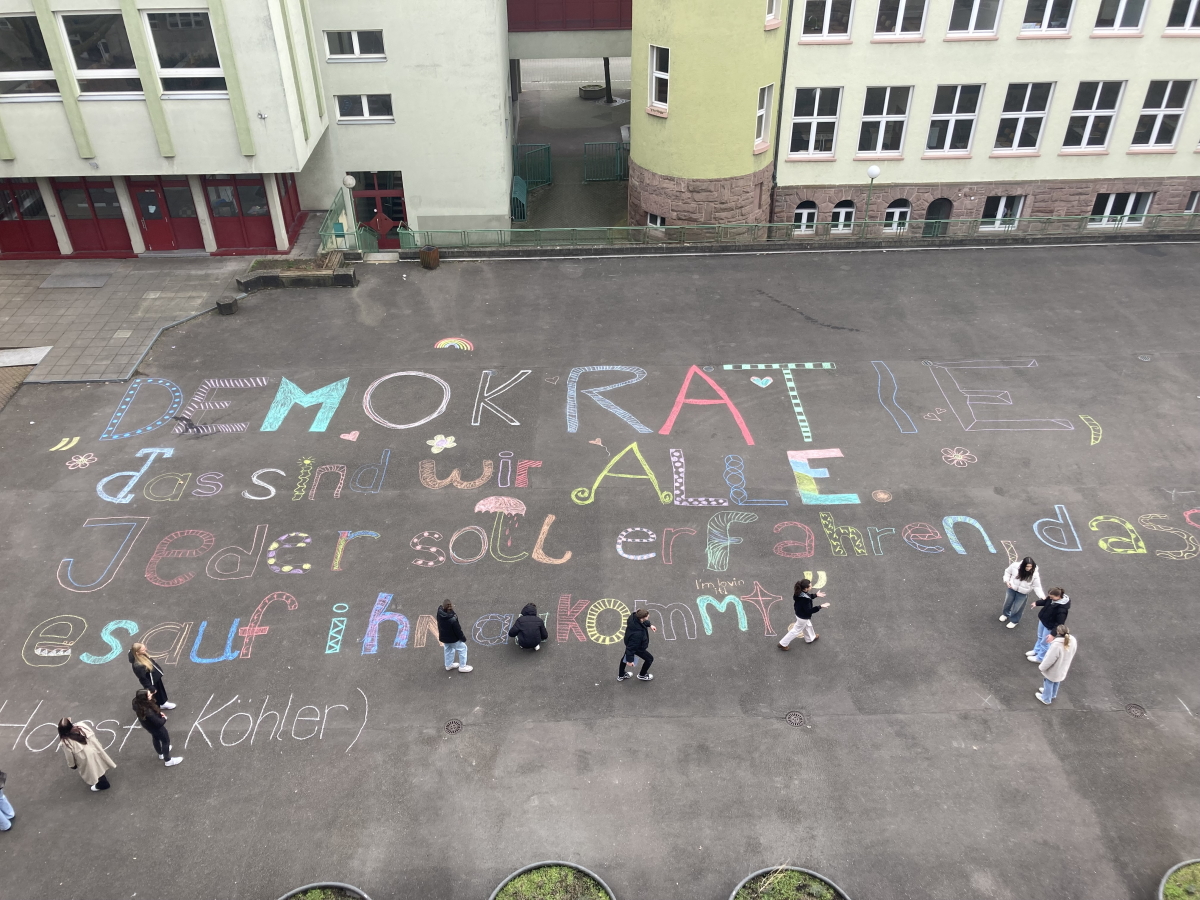 „DEMOKRATIE,
das sind wir ALLE.
Jeder soll erfahren, dass
es auf ihn ankommt“
I'm lovin it
(Horst Köhler)